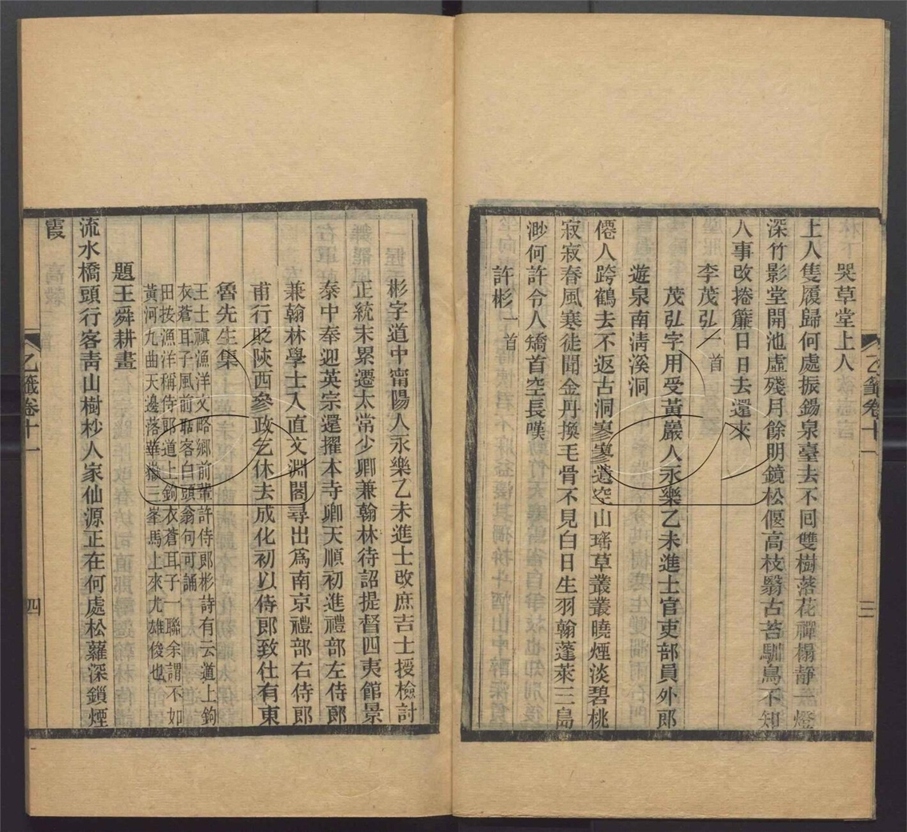 哭草堂上人
上人隻履歸何處振錫泉臺去不回雙樹落花禪榻靜一燈
深竹影堂開池虛殘月餘明鏡松偃高枝翳古苔馴鳥不知
人事改捲簾日日去還來
李茂弘一首
茂弘字用受黃巖人永樂乙未進士官吏部員外郎
遊泉南清溪洞
僊人跨鶴去不返古洞寥寥遺空山瑤草叢叢曉煙淡碧桃
寂寂春風寒徒聞金丹換毛骨不見白日生羽翰蓬萊三島
渺何許令人矯首空長嘆
許彬一首
乙籤卷十一
三
彬字道中甯陽人永樂乙未進士改庶吉士授檢討
正統末累遷太常少卿兼翰林待詔提督四夷館景
泰中奉迎英宗還擢本寺卿天順初進禮部左侍郎
兼翰林學士入直文淵閣尋出爲南京禮部右侍郎
甫行貶陝西參政乞休去成化初以侍郎致仕有東
魯先生集
王士禛漁洋文略鄉前輩許侍郎彬詩有云道上鉤
衣蒼耳子風前聒客白頭翁句可誦
田按漁洋稱侍郎道上鉤衣蒼耳子一聯余謂不如
黃河九曲天邊落華嶽三峯馬上來尤雄俊也
題王舜耕畫
流水橋頭行客靑山樹杪人家仙源正在何處松蘿深鎖煙
霞
乙籤卷十一
四